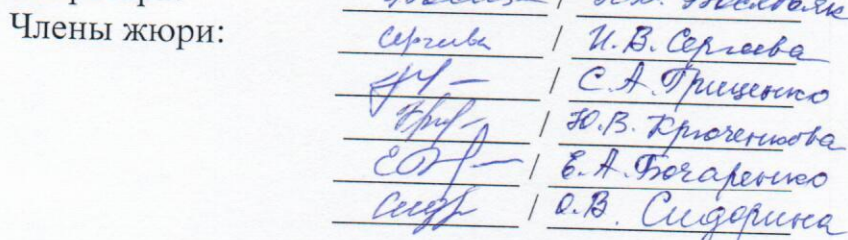 Члены жюри:
Сергеева / И.В. Сергеева
/ С.А. Гриценко
/ Ю.В. Крюченкова
/ Е.А. Бочаренко
/ О.В. Сидорина